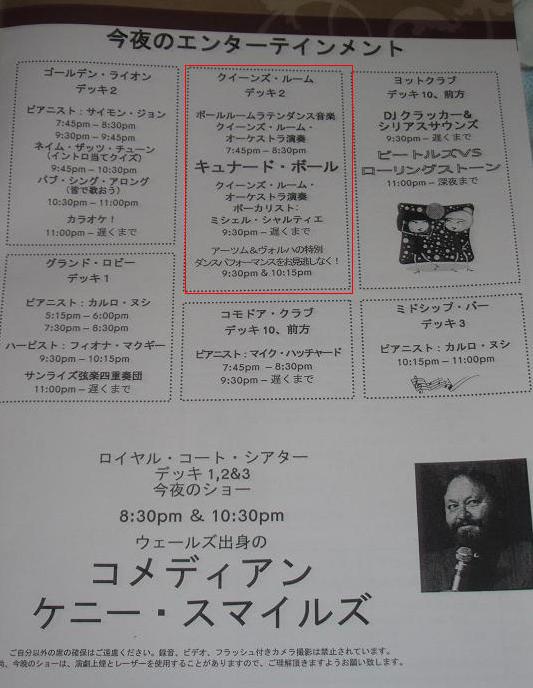 今夜のエンターテインメント
ゴールデン・ライオン
デッキ2
ピアニスト：サイモン・ジョン
7:45pm – 8:30pm
9:30pm – 9:45pm
ネイム・ザッツ・チューン
（イントロ当てクイズ）
9:45pm – 10:30pm
パブ・シング・アロング
（皆で歌おう）
10:30pm – 11:00pm
カラオケ！
11:00pm – 遅くまで
クイーンズ・ルーム
デッキ2
ボールルームラテンダンス音楽
クイーンズ・ルーム・
オーケストラ演奏
7:45pm – 8:30pm
キュナード・ボール
クイーンズ・ルーム・
オーケストラ演奏
ボーカリスト：
ミシェル・シャルティエ
9:30pm – 遅くまで
アーツム＆ヴォルハの特別
ダンスパフォーマンスをお見逃しなく！
9:30pm & 10:15pm
ヨットクラブ
デッキ10、前方
DJクラッカー&
シリアスサウンズ
9:30pm – 遅くまで
ビートルズVS
ローリングストーン
11:00pm – 深夜まで
グランド・ロビー
デッキ1
ピアニスト：カルロ・ヌシ
5:15pm – 6:00pm
7:30pm – 8:30pm
ハーピスト：フィオナ・マクギー
9:30pm – 10:15pm
サンライズ弦楽四重奏団
11:00pm – 遅くまで
コモドア・クラブ
デッキ10、前方
ピアニスト：マイク・ハッチャード
7:45pm – 8:30pm
9:30pm – 遅くまで
ミドシップ・バー
デッキ3
ピアニスト：カルロ・ヌシ
10:15pm – 11:00pm
ロイヤル・コート・シアター
デッキ1,2&3
今夜のショー
8:30pm & 10:30pm
ウェールズ出身の
コメディアン
ケニー・スマイルズ
ご自分以外の席の確保はご遠慮ください。録音、ビデオ、フラッシュ付きカメラ撮影は禁止されています。
尚、今晩のショーは、演劇上煙とレーザーを使用することがありますので、ご理解頂きますようお願い致します。